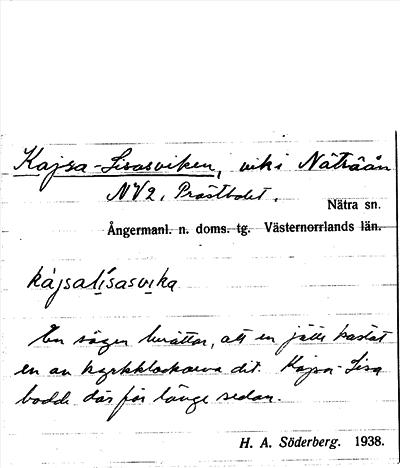 Kajsa-Lisasviken, vik i Nätraån
NV2, Prästbolet.
Nätra sn.
Ångermanl. n. doms. tg. Västernorrlands län.
kajsalisasvika
En sägen berättar, att en jätte kastat
en av kyrkklockorna dit. Kajsa-Lisa
bodde där för länge sedan.
H. A. Söderberg. 1938.